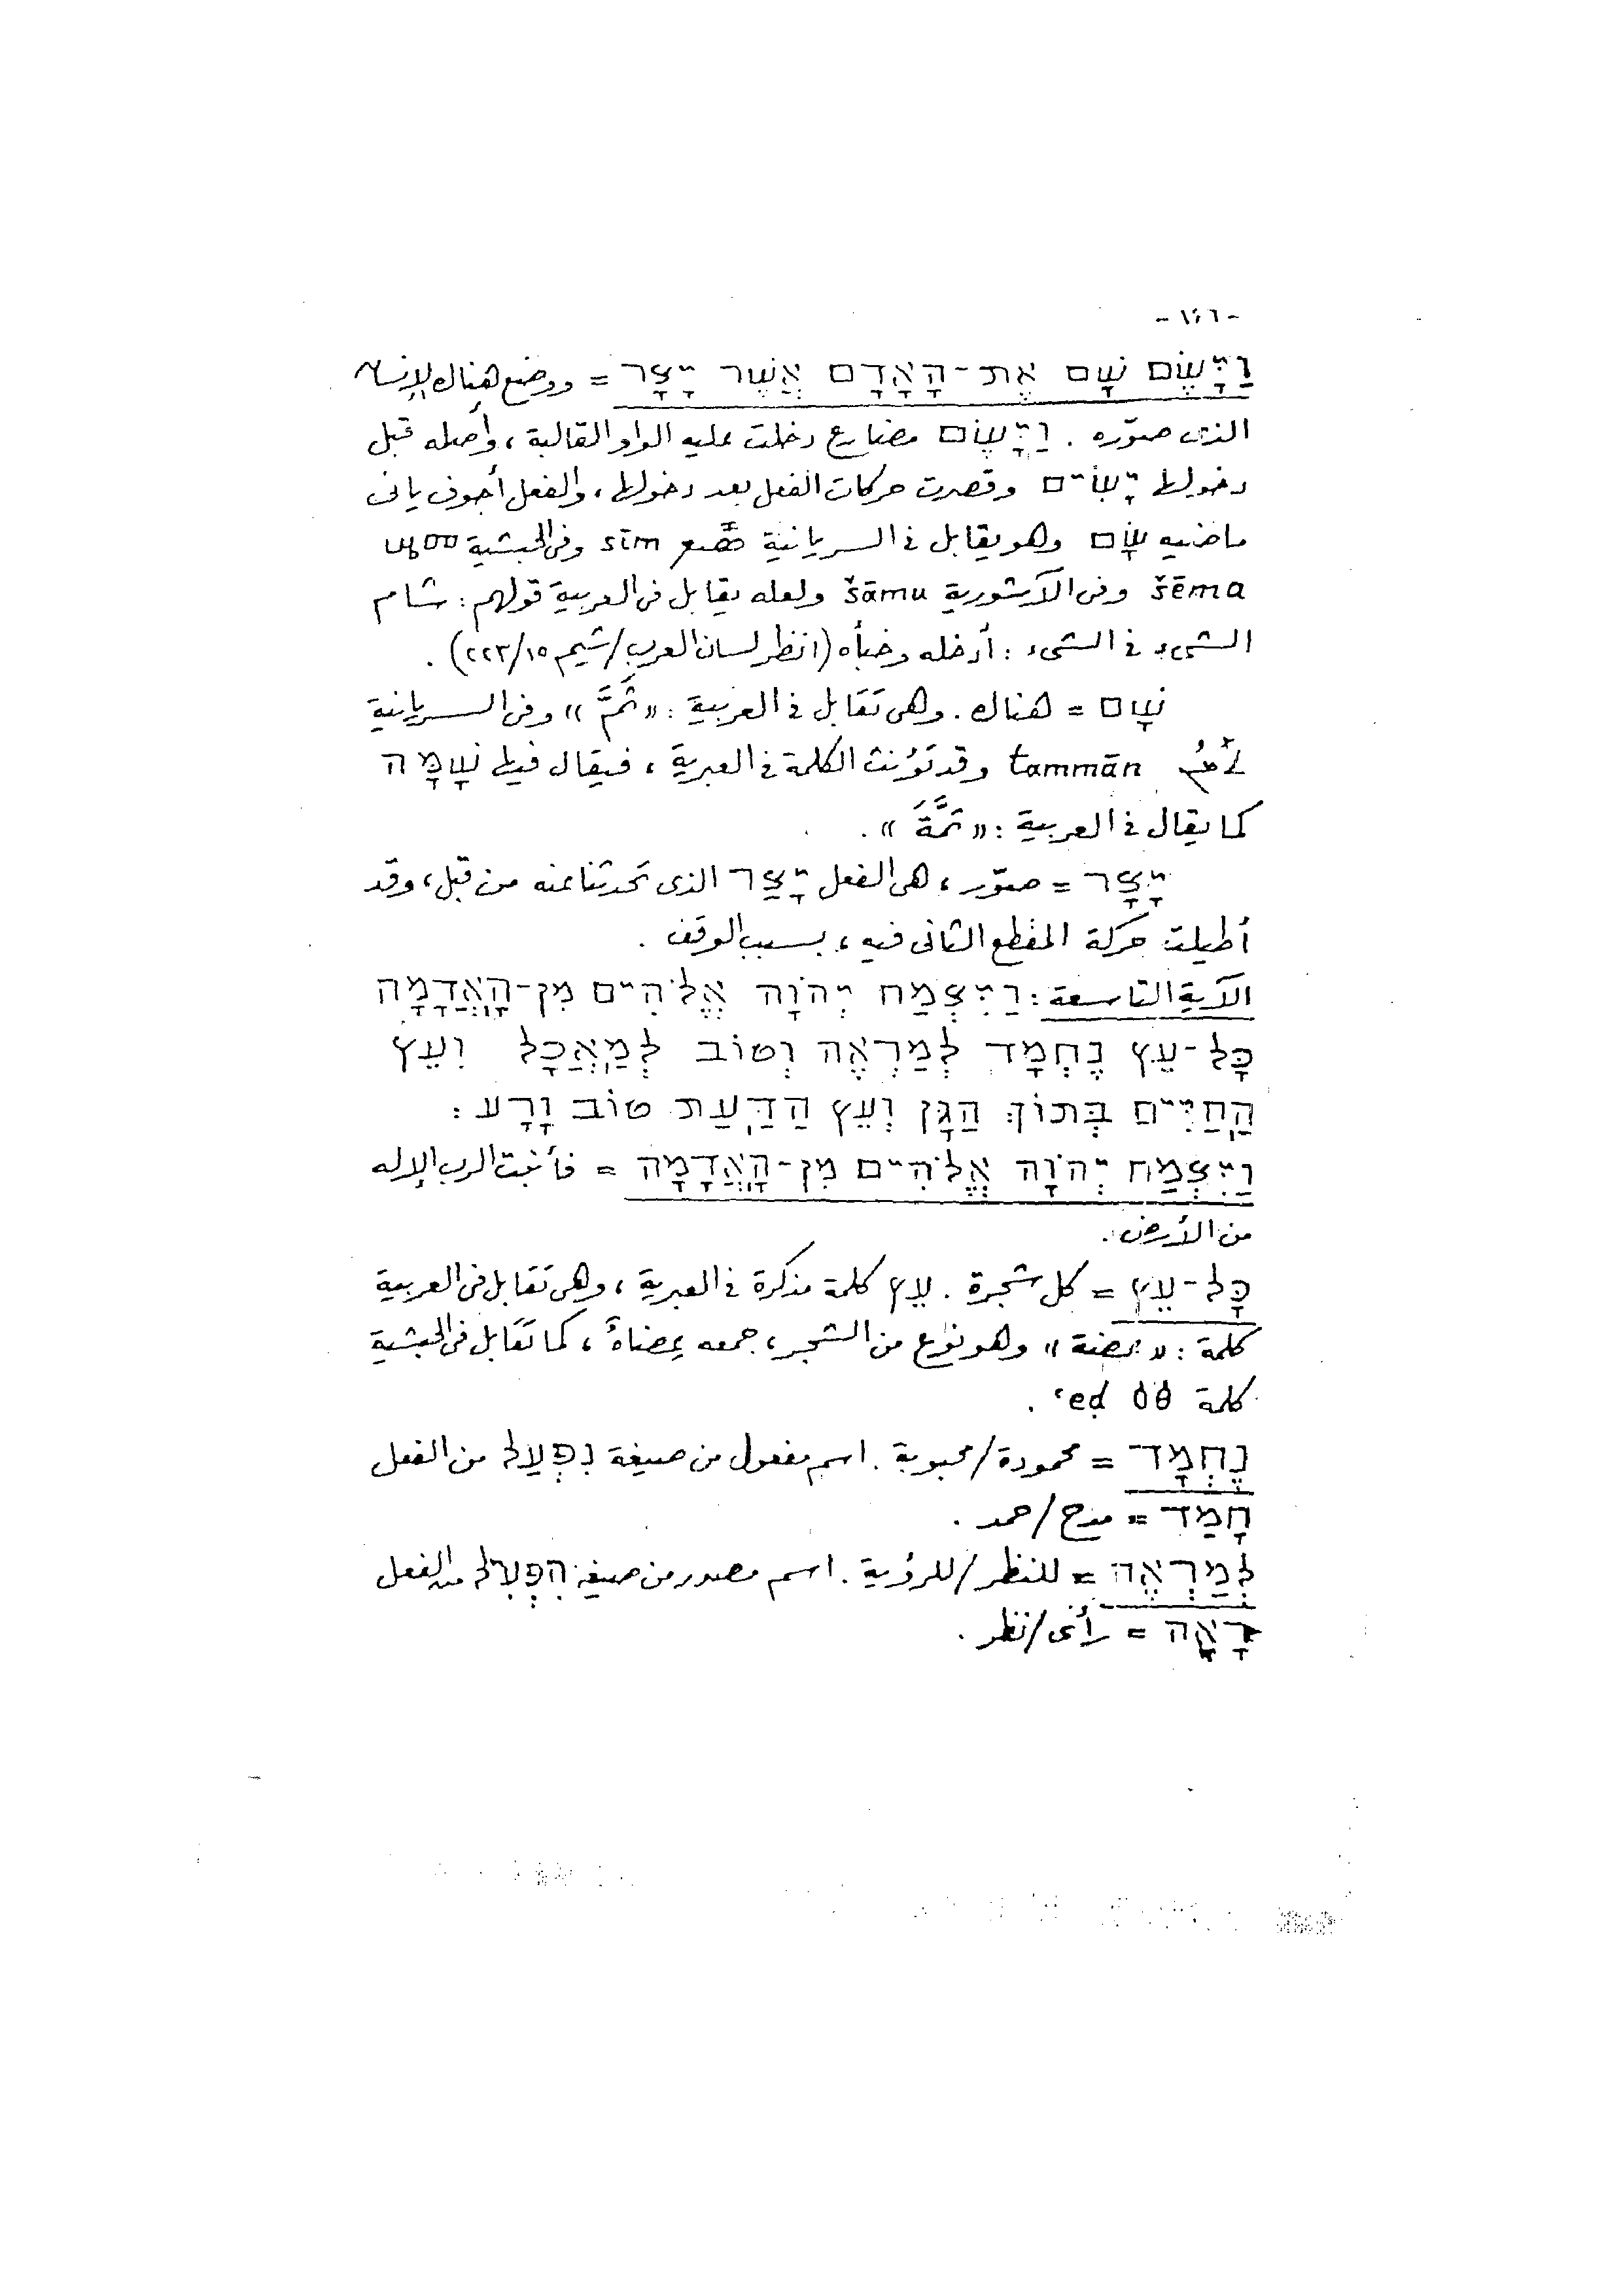 -١٤٦-
וַיָּשֶׂם שָׁם אֶת-הָאָדָם אֲשֶׁר יָצָר = ووضع هناك الإنسان
الذى صوّره . וַיָּשֶׂם مضارع دخلت عليه الواو القالبة ، وأصله قبل
دخولها יָשִׂים وقصرت حركات الفعل بعد دخولها ، والفعل أجوف يائى
ماضيه שָׂם وهو يقابل فى السريانية sīm وفى الحبشية
šēma وفى الآشورية šāmu ولعله يقابل فى العربية قولهم : شام
الشىء فى الشىء : أدخله وخبأه (انظر لسان العرب/شيم ٢٢٣/١٥) .
שָׁם = هناك . وهى تقابل فى العربية : « ثَمَّ » وفى السريانية
tammān وقد تؤنث الكلمة فى العبرية ، فيقال فيها שָׁמָּה
كما يقال فى العربية : « ثَمَّةَ » .
יָצָר = صوّر ، هى الفعل יָצַר الذى تحدثنا عنه من قبل ، وقد
أطيلت حركة المقطع الثانى فيه ، بسبب الوقف .
الآية التاسعة : וַיִּצְמַח יְהֹוָה אֱלֹהִים מִן-הָאֲדָמָה
כָּל-עֵץ נֶחְמָד לְמַרְאֶה וְטוֹב לְמַאֲכָל וְעֵץ
הַחַיִּים בְּתוֹךְ הַגָּן וְעֵץ הַדַּעַת טוֹב וָרָע :
וַיִּצְמַח יְהֹוָה אֱלֹהִים מִן-הָאֲדָמָה = فأنبت الرب الإله
من الأرض .
כָּל-עֵץ = كل شجرة . עֵץ كلمة مذكرة فى العبرية ، وهى تقابل فى العربية
كلمة : « عضة » وهو نوع من الشجر ، جمعه عضاهٌ ، كما تقابل فى الحبشية
كلمة ዕፀ ʿeḍ .
נֶחְמָד = محمودة/محبوبة . اسم مفعول من صيغة נִפְעַל من الفعل
חָמַד = مدح/حمد .
לְמַרְאֶה = للنظر/للرؤية . اسم مصدر من صيغة הִפְעִל من الفعل
רָאָה = رأى/نظر .